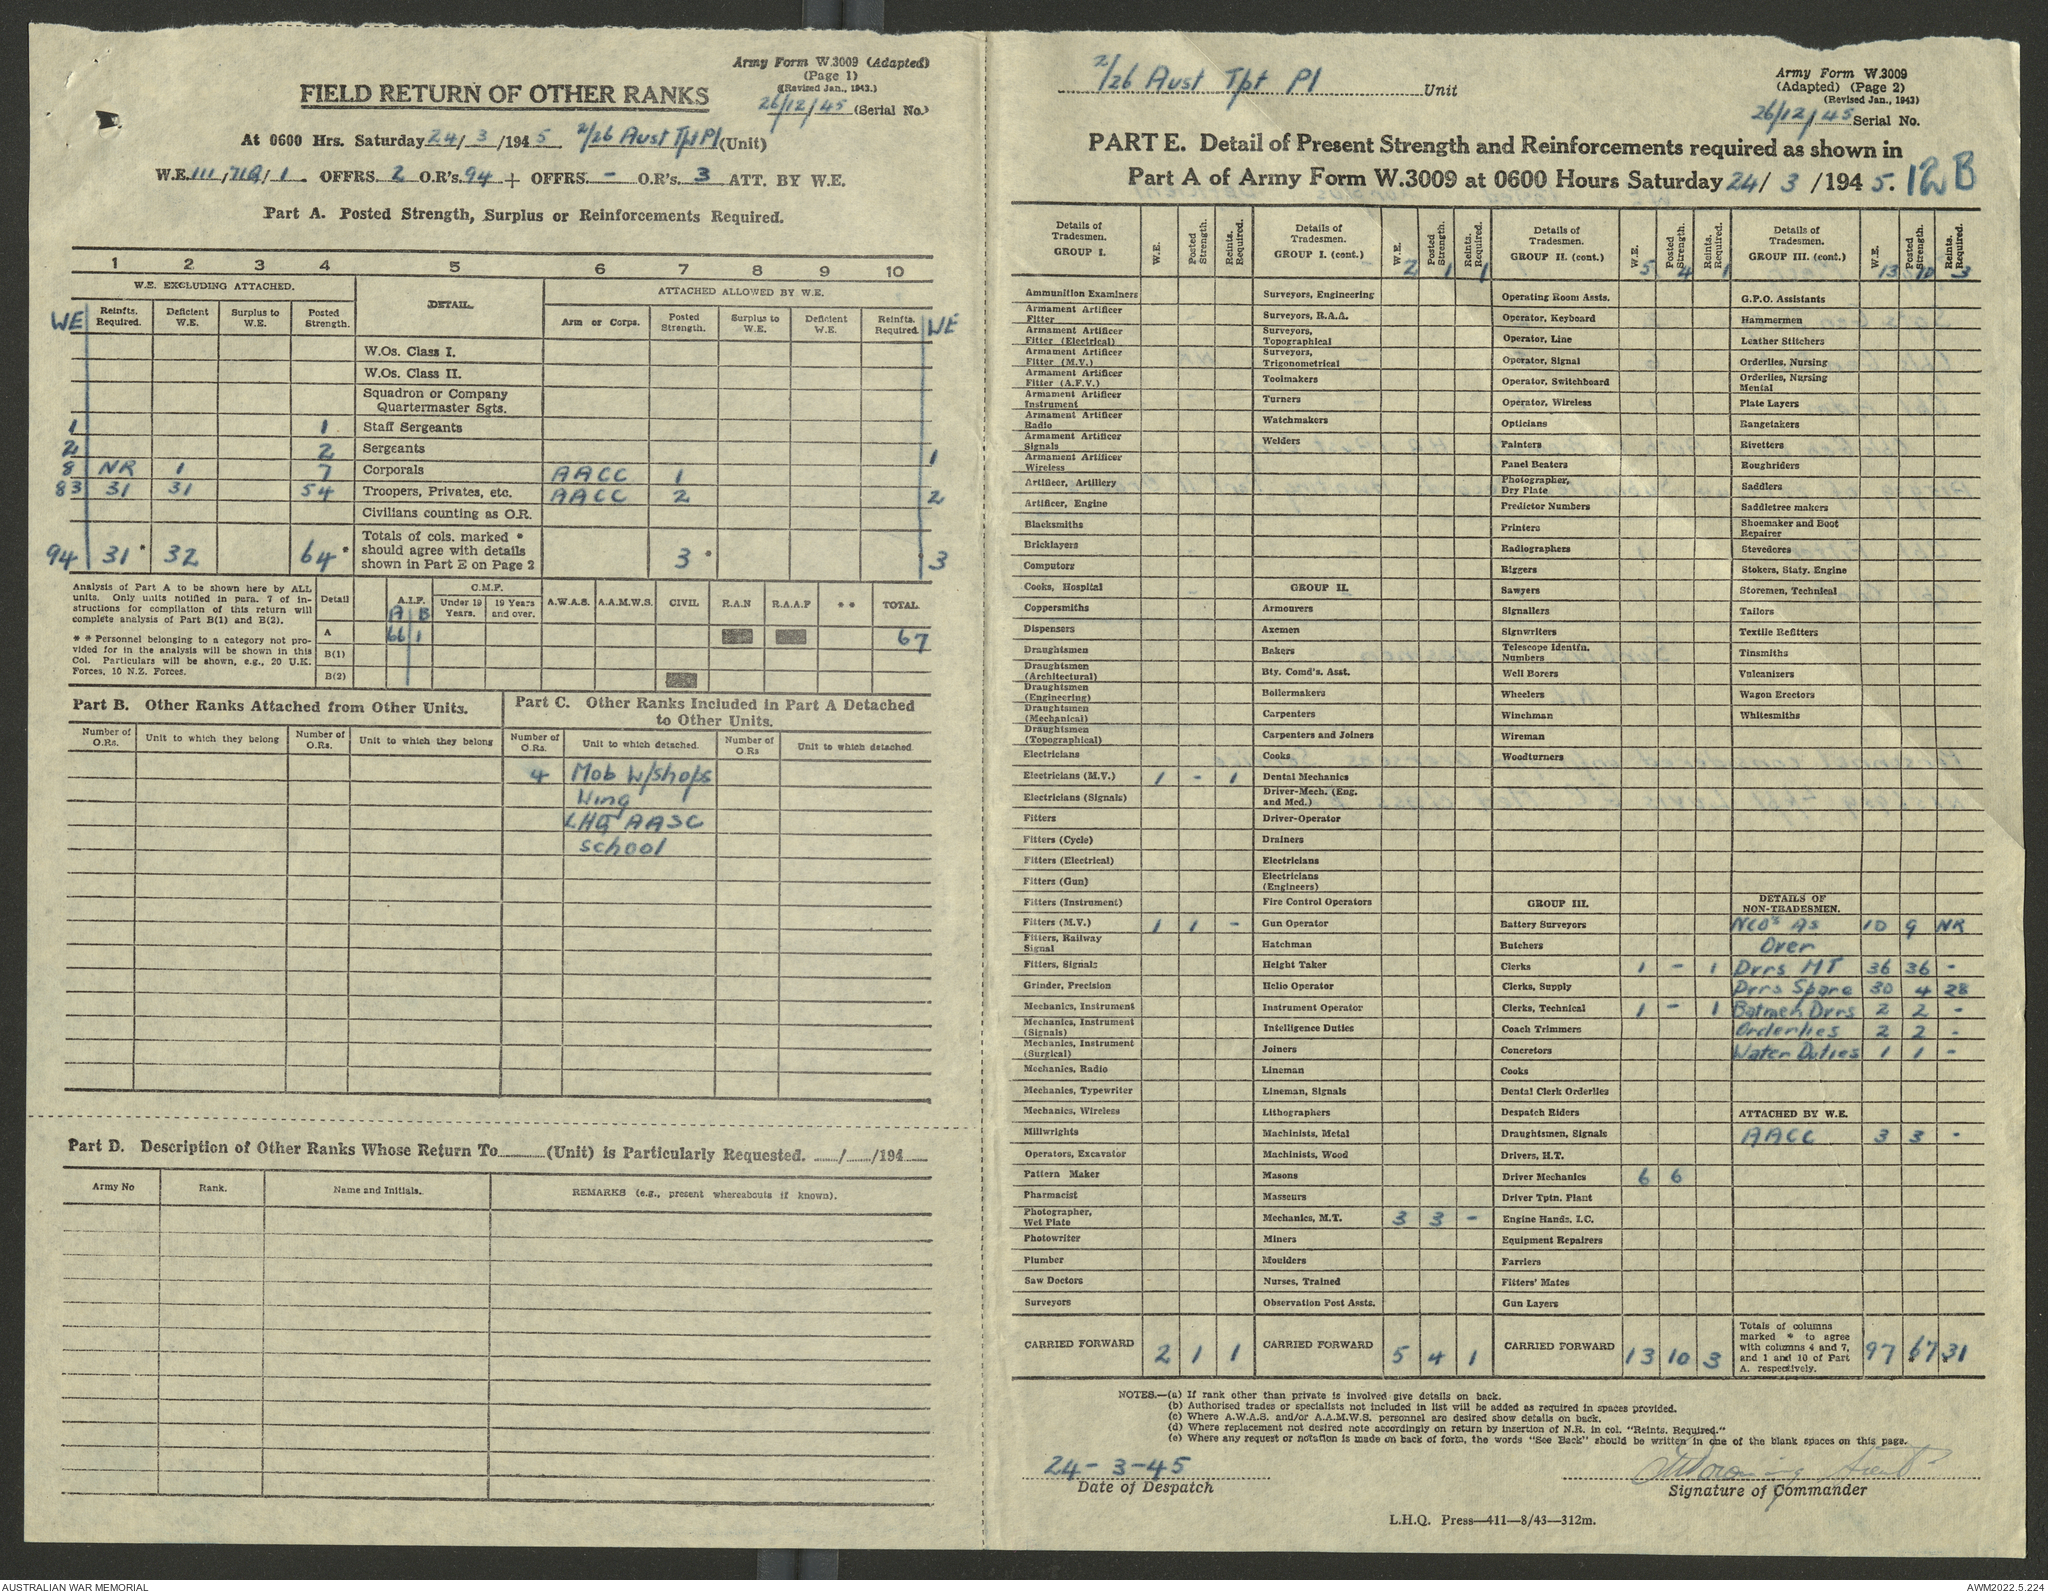 Army Form W.3009 (Adapted)
(Page 1)
(Revised Jan., 1943.)
FIELD RETURN OF OTHER RANKS
26/12/45 (Serial No.)
At 0600 Hrs. Saturday 24/3/1945. 2/26 Aust Tpt Pl (Unit)
W.E. 111/71Q/1. OFFRS. 2 O.R's. 94 + OFFRS. - O.R's. 3 ATT. BY W.E.
Part A. Posted Strength, Surplus or Reinforcements Required.
1 2 3 4 5 6 7 8 9 10
W.E. EXCLUDING ATTACHED. DETAIL. ATTACHED ALLOWED BY W.E.
WE Reinfts. Required. Deficient W.E. Surplus to W.E. Posted Strength. Arm or Corps. Posted Strength. Surplus to W.E. Deficient W.E. Reinfts. Required. WE
W.Os. Class I.
W.Os. Class II.
Squadron or Company Quartermaster Sgts.
1 1 Staff Sergeants
2 2 Sergeants
8 NR 1 7 Corporals AACC 1 1
83 31 31 54 Troopers, Privates, etc. AACC 2 2
Civilians counting as O.R.
94 31 * 32 64 * Totals of cols. marked * should agree with details shown in Part E on Page 2 3 * * 3
Analysis of Part A to be shown here by ALL units. Only units notified in para. 7 of instructions for compilation of this return will complete analysis of Part B(1) and B(2).
* * Personnel belonging to a category not provided for in the analysis will be shown in this Col. Particulars will be shown, e.g., 20 U.K. Forces, 10 N.Z. Forces.
Detail A.I.F. C.M.F. Under 19 Years. 19 Years and over. A.W.A.S. A.A.M.W.S. CIVIL R.A.N R.A.A.F * * TOTAL
A B
A 66 1 67
B(1)
B(2)
Part B. Other Ranks Attached from Other Units.
Number of O.Rs. Unit to which they belong Number of O.Rs. Unit to which they belong
Part C. Other Ranks Included in Part A Detached to Other Units.
Number of O.Rs. Unit to which detached. Number of O.Rs Unit to which detached
4 Mob W/shops
Wing
LHQ AASC
School
Part D. Description of Other Ranks Whose Return To (Unit) is Particularly Requested. / /194
Army No Rank. Name and Initials. REMARKS (e.g., present whereabouts if known).
2/26 Aust Tpt Pl Unit
Army Form W.3009
(Adapted) (Page 2)
(Revised Jan., 1943)
26/12/45 Serial No.
PART E. Detail of Present Strength and Reinforcements required as shown in
Part A of Army Form W.3009 at 0600 Hours Saturday 24/3/1945. 12B
Details of Tradesmen. GROUP I. W.E. Posted Strength. Reints. Required.
Ammunition Examiners
Armament Artificer Fitter
Armament Artificer Fitter (Electrical)
Armament Artificer Fitter (M.V.)
Armament Artificer Fitter (A.F.V.)
Armament Artificer Instrument
Armament Artificer Radio
Armament Artificer Signals
Armament Artificer Wireless
Artificer, Artillery
Artificer, Engine
Blacksmiths
Bricklayers
Computors
Cooks, Hospital
Coppersmiths
Dispensers
Draughtsmen
Draughtsmen (Architectural)
Draughtsmen (Engineering)
Draughtsmen (Mechanical)
Draughtsmen (Topographical)
Electricians
Electricians (M.V.) 1 - 1
Electricians (Signals)
Fitters
Fitters (Cycle)
Fitters (Electrical)
Fitters (Gun)
Fitters (Instrument)
Fitters (M.V.) 1 1 -
Fitters, Railway Signal
Fitters, Signals
Grinder, Precision
Mechanics, Instrument
Mechanics, Instrument (Signals)
Mechanics, Instrument (Surgical)
Mechanics, Radio
Mechanics, Typewriter
Mechanics, Wireless
Millwrights
Operators, Excavator
Pattern Maker
Pharmacist
Photographer, Wet Plate
Photowriter
Plumber
Saw Doctors
Surveyors
CARRIED FORWARD 2 1 1
Details of Tradesmen. GROUP I. (cont.) W.E. Posted Strength. Reints. Required.
2 1 1
Surveyors, Engineering
Surveyors, R.A.A.
Surveyors, Topographical
Surveyors, Trigonometrical
Toolmakers
Turners
Watchmakers
Welders
GROUP II.
Armourers
Axemen
Bakers
Bty. Comd's. Asst.
Boilermakers
Carpenters
Carpenters and Joiners
Cooks
Dental Mechanics
Driver-Mech. (Eng. and Med.)
Driver-Operator
Drainers
Electricians
Electricians (Engineers)
Fire Control Operators
Gun Operator
Hatchman
Height Taker
Helio Operator
Instrument Operator
Intelligence Duties
Joiners
Lineman
Lineman, Signals
Lithographers
Machinists, Metal
Machinists, Wood
Masons
Masseurs
Mechanics, M.T. 3 3 -
Miners
Moulders
Nurses, Trained
Observation Post Assts.
CARRIED FORWARD 5 4 1
Details of Tradesmen. GROUP II. (cont.) W.E. Posted Strength. Reints. Required.
5 4 1
Operating Room Assts.
Operator, Keyboard
Operator, Line
Operator, Signal
Operator, Switchboard
Operator, Wireless
Opticians
Painters
Panel Beaters
Photographer, Dry Plate
Predictor Numbers
Printers
Radiographers
Riggers
Sawyers
Signallers
Signwriters
Telescope Identfn. Numbers
Well Borers
Wheelers
Winchman
Wireman
Woodturners
GROUP III.
Battery Surveyors
Butchers
Clerks 1 - 1
Clerks, Supply
Clerks, Technical 1 - 1
Coach Trimmers
Concretors
Cooks
Dental Clerk Orderlies
Despatch Riders
Draughtsmen, Signals
Drivers, H.T.
Driver Mechanics 6 6
Driver Tptn. Plant
Engine Hands, I.C.
Equipment Repairers
Farriers
Fitters' Mates
Gun Layers
CARRIED FORWARD 13 10 3
Details of Tradesmen. GROUP III. (cont.) W.E. Posted Strength. Reints. Required.
13 10 3
G.P.O. Assistants
Hammermen
Leather Stitchers
Orderlies, Nursing
Orderlies, Nursing Mental
Plate Layers
Rangetakers
Rivetters
Roughriders
Saddlers
Saddletree makers
Shoemaker and Boot Repairer
Stevedores
Stokers, Staty. Engine
Storemen, Technical
Tailors
Textile Refitters
Tinsmiths
Vulcanizers
Wagon Erectors
Whitesmiths
DETAILS OF NON-TRADESMEN.
NCO's As 10 9 NR
Over
Dvrs MT 36 36 -
Dvrs Spare 30 4 28
Batmen Dvrs 2 2 -
Orderlies 2 2 -
Water Duties 1 1 -
ATTACHED BY W.E.
AACC 3 3 -
Totals of columns marked * to agree with columns 4 and 7, and 1 and 10 of Part A. respectively. 97 67 31
NOTES.—(a) If rank other than private is involved give details on back.
(b) Authorised trades or specialists not included in list will be added as required in spaces provided.
(c) Where A.W.A.S. and/or A.A.M.W.S. personnel are desired show details on back.
(d) Where replacement not desired note accordingly on return by insertion of N.R. in col. "Reints. Required."
(e) Where any request or notation is made on back of form, the words "See Back" should be written in one of the blank spaces on this page.
24-3-45
Date of Despatch
Signature of Commander
L.H.Q. Press—411—8/43—312m.
AUSTRALIAN WAR MEMORIAL
AWM2022.5.224